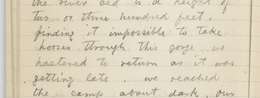 the river bed is a height of
two or three hundred feet,
finding it impossible to take
horses through this gorge we
hastened to return as it was
getting late. we reached
the camp about dark, our